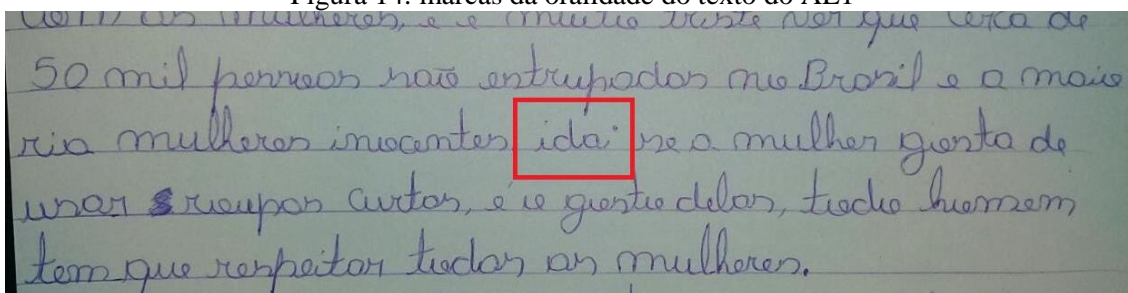 Figura 14: marcas da oralidade do texto do AL1
com as mulheres, e é muito triste ver que cerca de
50 mil pessoas são estrupadas no Brasil e a maio
ria mulheres inocentes idai se a mulher gosta de
usar roupas curtas, é o gosto delas, todo homem
tem que respeitar todas as mulheres.